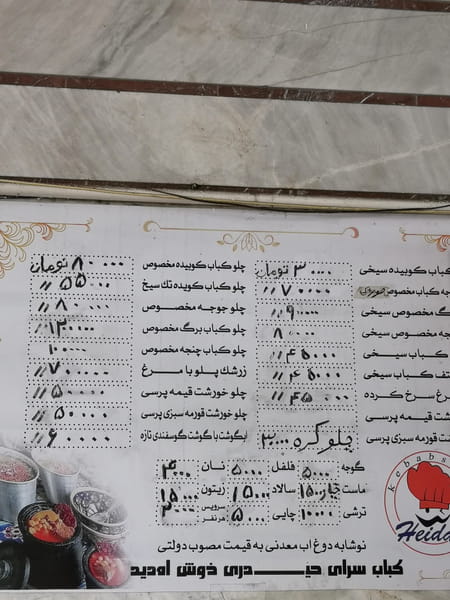 کباب کوبیده سیخی ۳۰۰۰۰ تومان
چه کباب مخصوص ۷۰۰۰۰ //
گ مخصوص سیخی ۹۰۰۰۰ //
چه مخصوص سیخی ۸۰۰۰۰
کباب سیخی ۴۵۰۰۰ //
تف کباب سیخی ۴۵۰۰۰ //
رغ سرخ کرده ۴۵۰۰۰ //
شت قیمه پرسی
شت قورمه سبزی پرسی
چلو کره
چلو کباب کوبیده مخصوص ۸۰۰۰۰ تومان
چلو کباب کوبیده تک سیخ ۵۵۰۰۰ //
چلو جوجه مخصوص ۸۰۰۰۰ //
چلو کباب برگ مخصوص ۱۲۰۰۰۰
چلو کباب چنجه مخصوص ۱۰۰۰۰۰
زرشک پلو با مرغ ۷۰۰۰۰ //
چلو خورشت قیمه پرسی ۵۰۰۰۰ //
چلو خورشت قورمه سبزی پرسی ۵۰۰۰۰ //
آبگوشت با گوشت گوسفندی تازه ۶۰۰۰۰ //
گوجه ۵۰۰۰ فلفل ۵۰۰۰ نان ۴۰۰۰
ماست خیار ۱۵۰۰۰ سالاد ۱۵۰۰۰ زیتون ۱۵۰۰۰
ترشی ۱۰۰۰۰ چایی ۵۰۰۰ سرویس هر نفر ۲۰۰۰
نوشابه دوغ آب معدنی به قیمت مصوب دولتی
کباب سرای حیدری خوش آمدید
kebabs
Heida